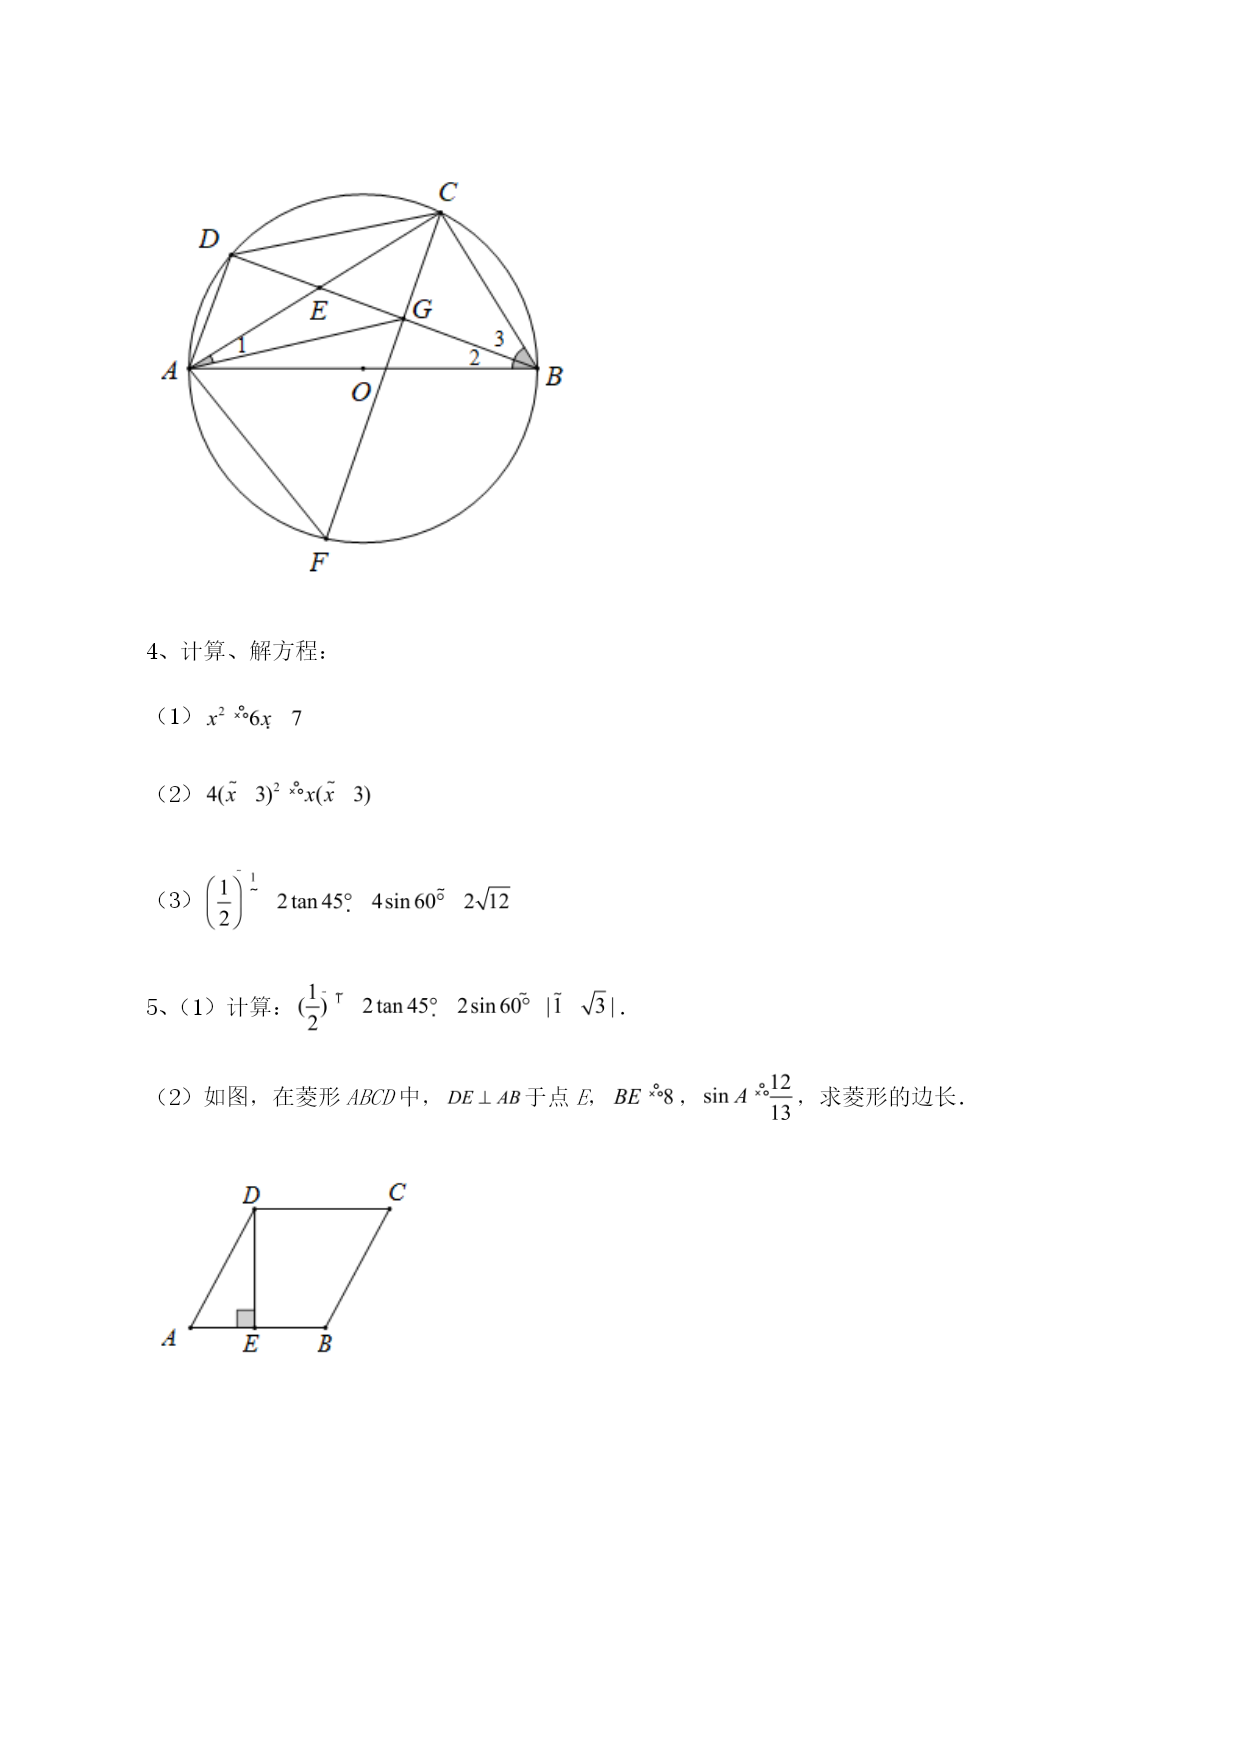 C
D
E
G
1
3
2
A
O
B
F
4、计算、解方程：
（1）x² 6x 7
（2）4(x̃ 3)² x(x̃ 3)
（3）(1/2)⁻¹ 2 tan 45° 4 sin 60° 2√12
5、（1）计算：(1/2)⁻¹ 2 tan 45° 2 sin 60° |1 √3|．
（2）如图，在菱形ABCD中，DE⊥AB于点E，BE 8，sin A 12/13，求菱形的边长．
D C
A E B